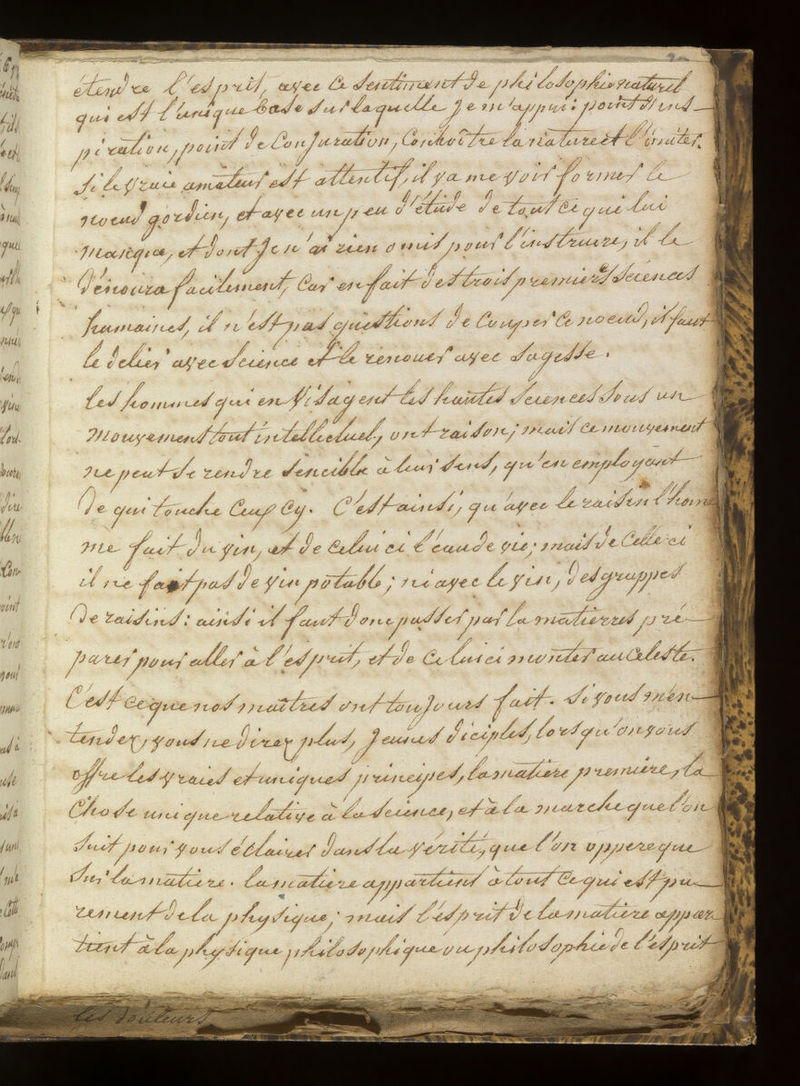 étendre l'esprit, avec ce sentiment de philosophie naturel
qui est l'unique base sur laquelle Je m'appui: point d'ins-
piration, point de Conjuration, Connoître la nature et l'imiter.
Si le vraie amateur est attentif, il va me voir former le
noeud gordien, et avec un peu d'étude de tout ce qui lui
manque, et dont Je n'ai rien omis pour l'instruire, il le
dénoura facilement, Car en fait des trois premieres Sciences
humaines, il n'est pas questions de Couper Ce noeud, il faut
le delier avec Science et le renouer avec Sagesse.
les hommes qui envisagent les hautes Sciences Sous un
mouvement tout intellectuel, ont raison; mais ce mouvement
ne peut Se rendre Sencible à leur Sens, qu'en employant
de qui touche Ceux Cy. C'est ainsi, qu'avec le raisin l'hom
me fait du vin, et de Celui ci l'eau de vie; mais de Celle ci
il ne fait pas de vin potable; ni avec le vin, des grappes
de raisins: ainsi il faut donc passer par la matierres pré-
parer pour aller à l'esprit, et de Celui ci monter au Celeste.
C'est ce que nos maîtres ont toujours fait. Si vous m'en-
tendez, vous ne direz plus, Jeunes diciples, lorsqu'on vous
offre les vraies et uniques principes, la matiere premiere, la
Chose unique relative à la Science, et à la marche que l'on
Suit pour vous éclairer dans la vérité, que l'on oppere que
Sur la matiere. la matiere appartient à tout Ce qui est pu-
rement de la physique; mais l'esprit de la matiere appar
tient à la physique philosophique ou philosophie de l'esprit
les douleurs